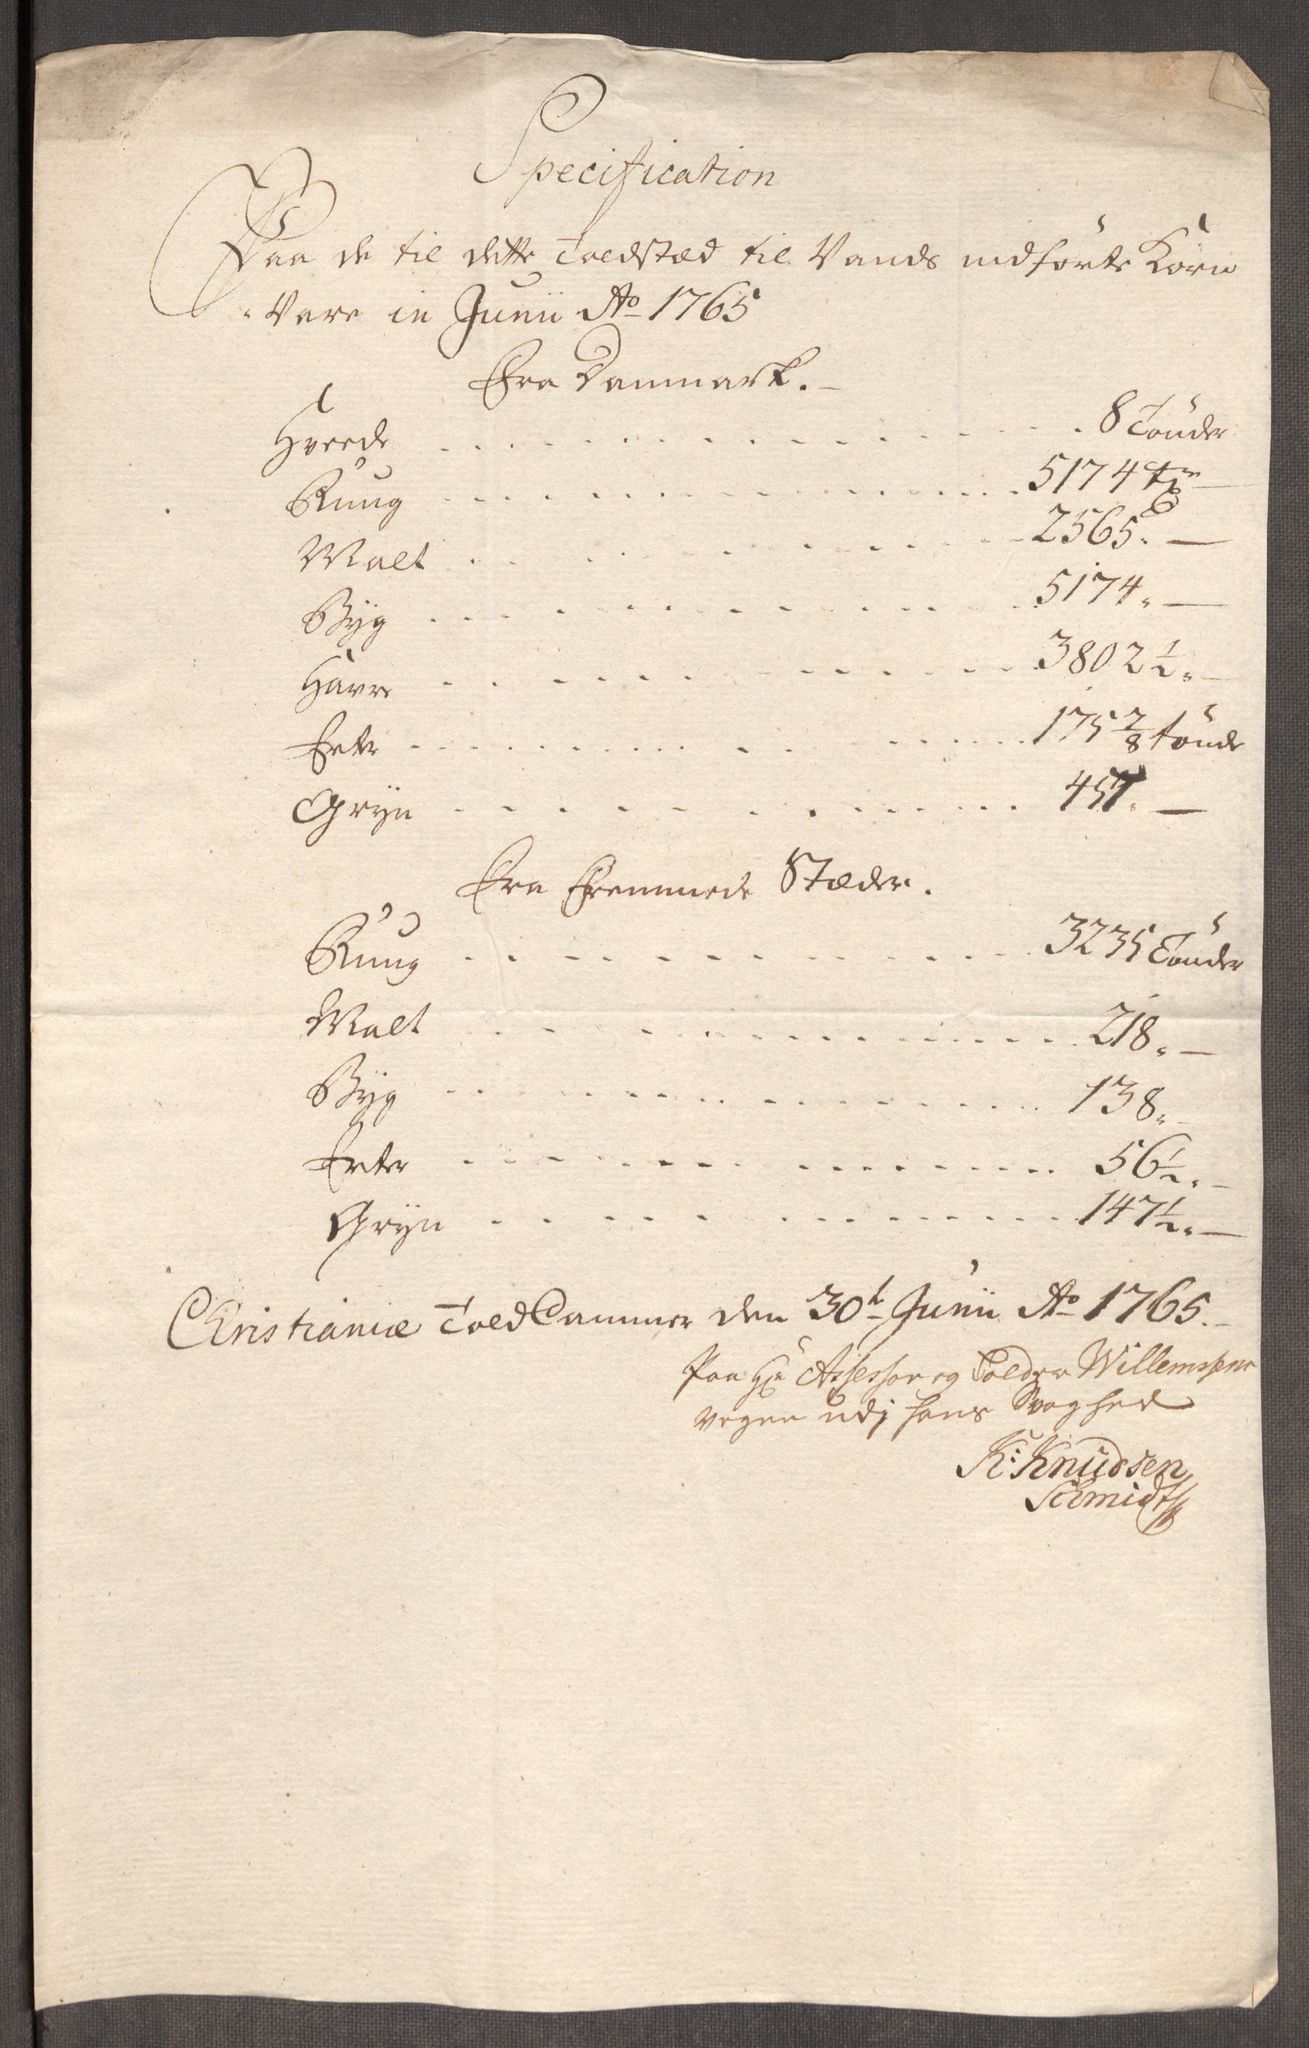 Specification
Paa de til dette Toldstæd til Vands indførte Korn
Vare in Junii Ao 1765
Fra Danmark.
Hvede . . . . . . . . . . . . 8 Tönder
Rúug . . . . . . . . . . . . 5174
Malt . . . . . . . . . . . . 2565 „ —
Byg . . . . . . . . . . . . 5174 „ —
Havre . . . . . . . . . . . . 3802 1/2 „ —
Erter . . . . . . . . . . . . 175 2/8 tönde
Gryn . . . . . . . . . . . . „ —
Fra Fremmede Stæder.
Rúug . . . . . . . . . . . . 3235 Tönder
Malt . . . . . . . . . . . . 218 „ —
Byg . . . . . . . . . . . . 138 „ —
Erter . . . . . . . . . . . . 56 1/2 „ —
Gryn . . . . . . . . . . . . 147 1/2 „ —
Christianiæ Told Cammer den 30t Júnii Ao 1765. —
Paa Hr Assessor og Tolder Willemsens
vegne udj hans Svaghed
K: Knudsen
Schmidt